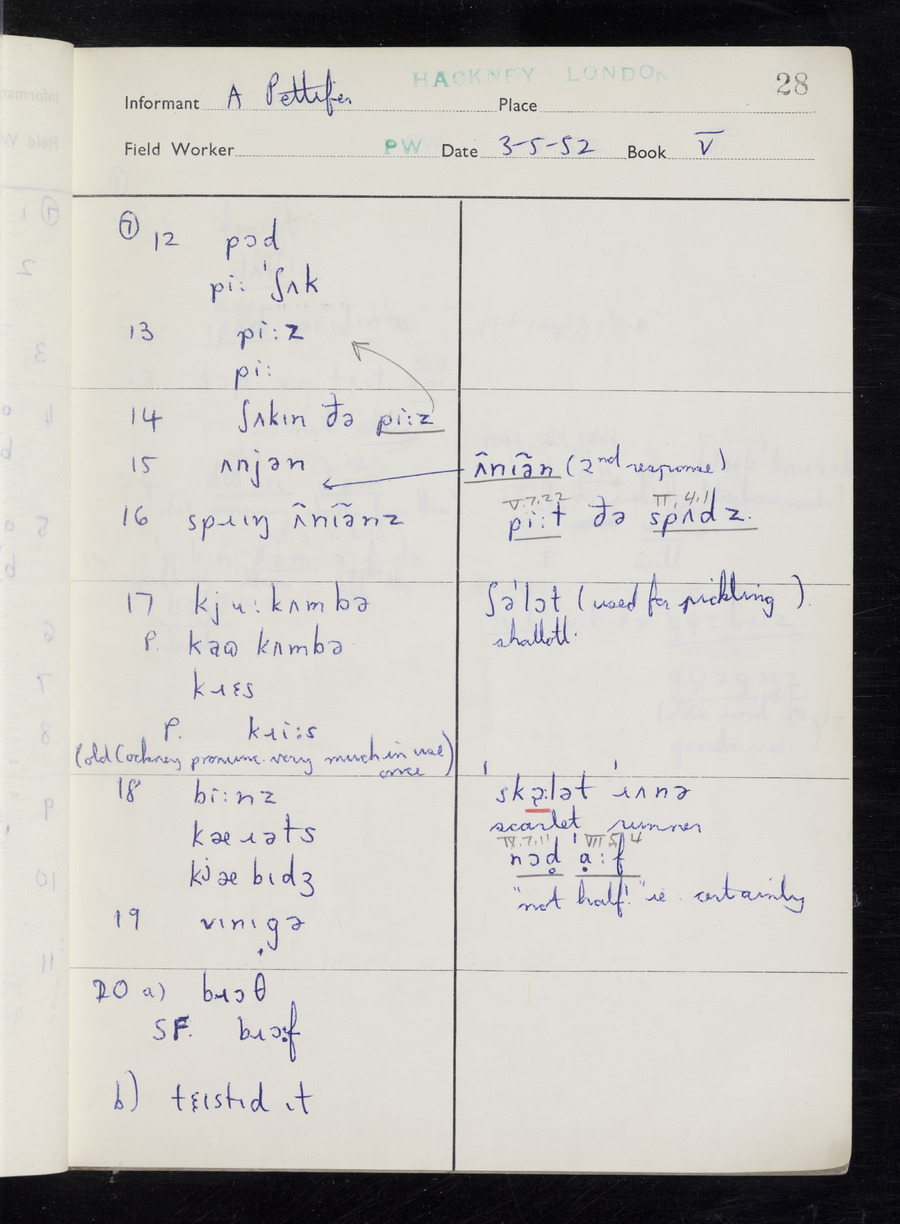 HACKNEY LONDON
28
Informant A Pettifer Place
Field Worker PW Date 3-5-52 Book V
⑦ 12 pɔd
pi: ˈʃʌk
13 pi:z
pi:
14 ʃʌkɪn ðə pi:z
15 ʌnjən
ʌ̃niə̃n (2nd response)
V.7.22 II.4.1
16 spɹɪŋ ʌ̃niə̃nz
pi:t ðə spʌdz.
17 kju:kʌmbə
ʃəˈlɔt (used for pickling).
P. kaɷ kʌmbə
shallott.
kɹɛs
P. kɹi:s
(old Cockney pronunc. very much in use once)
18 bi:nz
ˈskɑ:lət ˈɹʌnə
kæɹəts
scarlet runner
IX.7.11 VII.5.4
kʲæbɪdʒ
nɔd ˈa:f
"not half!" ie. certainly
19 vɪnɪgə
20 a) bɹɔθ
SF. bɹɔ:f
b) tɛɪstɪd ɪt